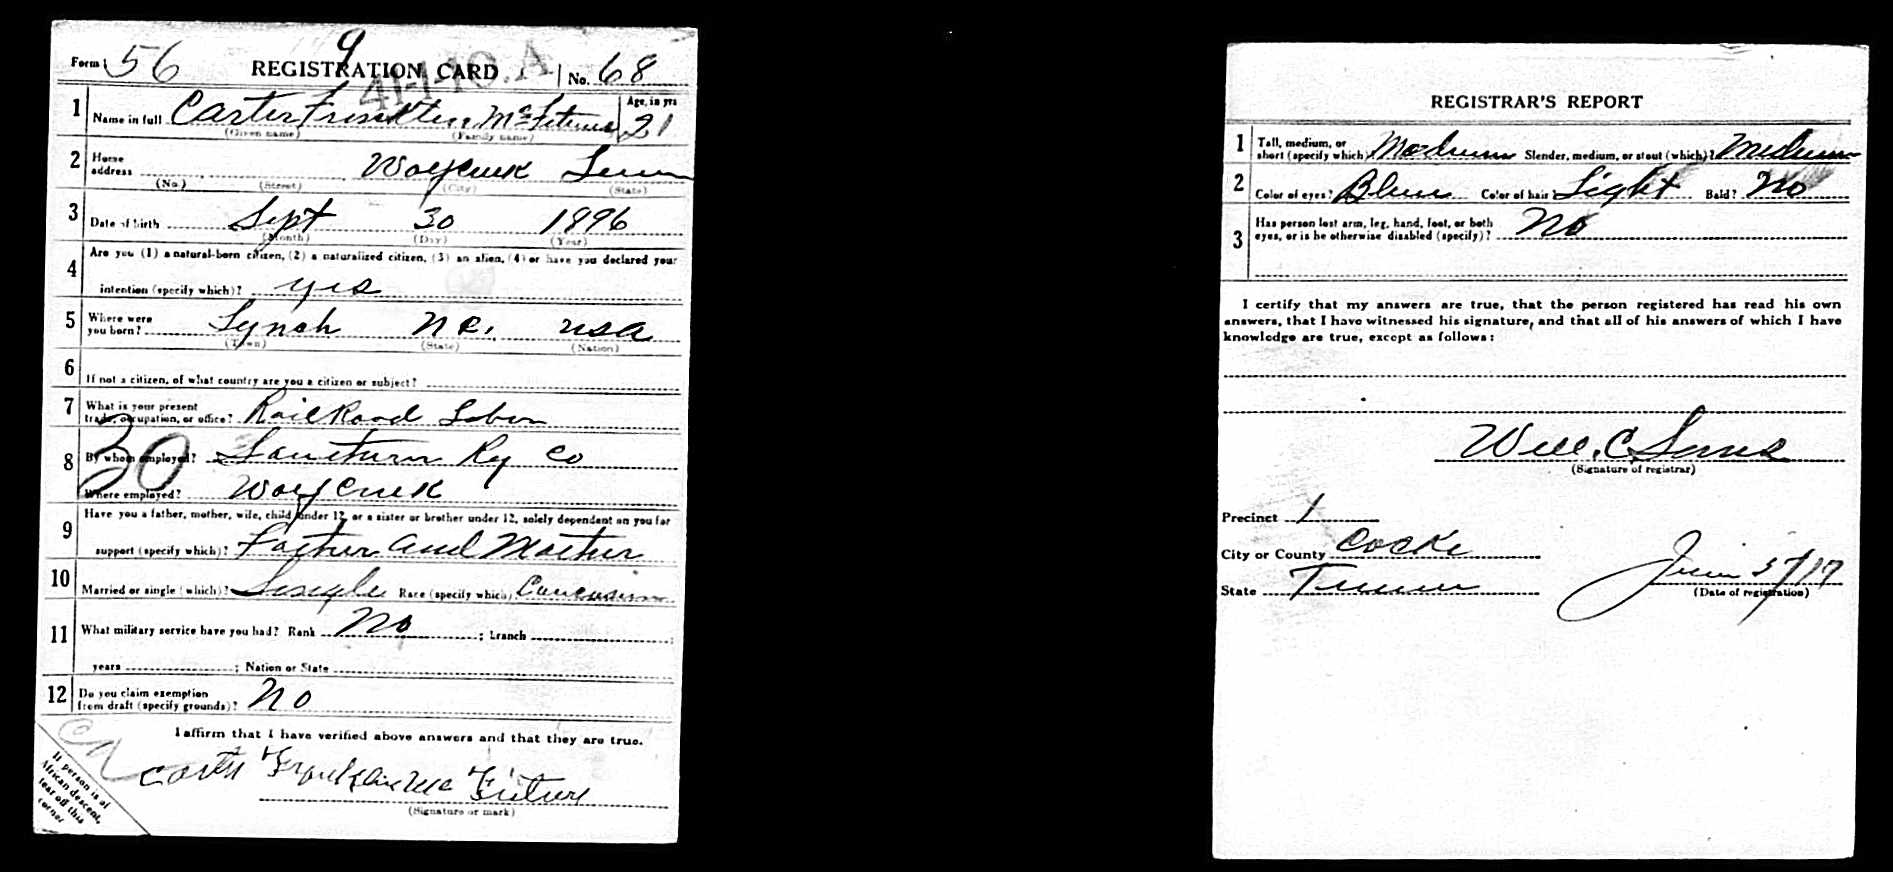 Form 1 56 REGISTRATION CARD No. 68
9
41-1-10.A
1 Name in full Carter Franklin Mc
(Given name) (Family name)
Age, in yrs
21
2 Home address Wolf Creek Tenn
(No.) (Street) (City) (State)
3 Date of birth Sept 30 1896
(Month) (Day) (Year)
4 Are you (1) a natural-born citizen, (2) a naturalized citizen, (3) an alien, (4) or have you declared your
intention (specify which)? yes
5 Where were you born? Lynch N.C. USA
(Town) (State) (Nation)
6 If not a citizen, of what country are you a citizen or subject?
7 What is your present trade, occupation, or office? Rail Road Labor
30
8 By whom employed? Southern Ry Co
Where employed? Wolf Creek
9 Have you a father, mother, wife, child under 12, or a sister or brother under 12, solely dependent on you for
support (specify which)? Father and Mother
10 Married or single (which)? Single Race (specify which) Caucasian
11 What military service have you had? Rank No ; branch ;
years ; Nation or State
12 Do you claim exemption from draft (specify grounds)? No
I affirm that I have verified above answers and that they are true.
Franklin Mc
(Signature or mark)
If person is of
African descent,
tear off this
corner
REGISTRAR'S REPORT
1 Tall, medium, or short (specify which) Medium Slender, medium, or stout (which)? Medium
2 Color of eyes? Blue Color of hair? Light Bald? No
3 Has person lost arm, leg, hand, foot, or both
eyes, or is he otherwise disabled (specify)? No
I certify that my answers are true, that the person registered has read his own
answers, that I have witnessed his signature, and that all of his answers of which I have
knowledge are true, except as follows:
Will. C.
(Signature of registrar)
Precinct 1
City or County Cocke
State Tenn
June 5/17
(Date of registration)